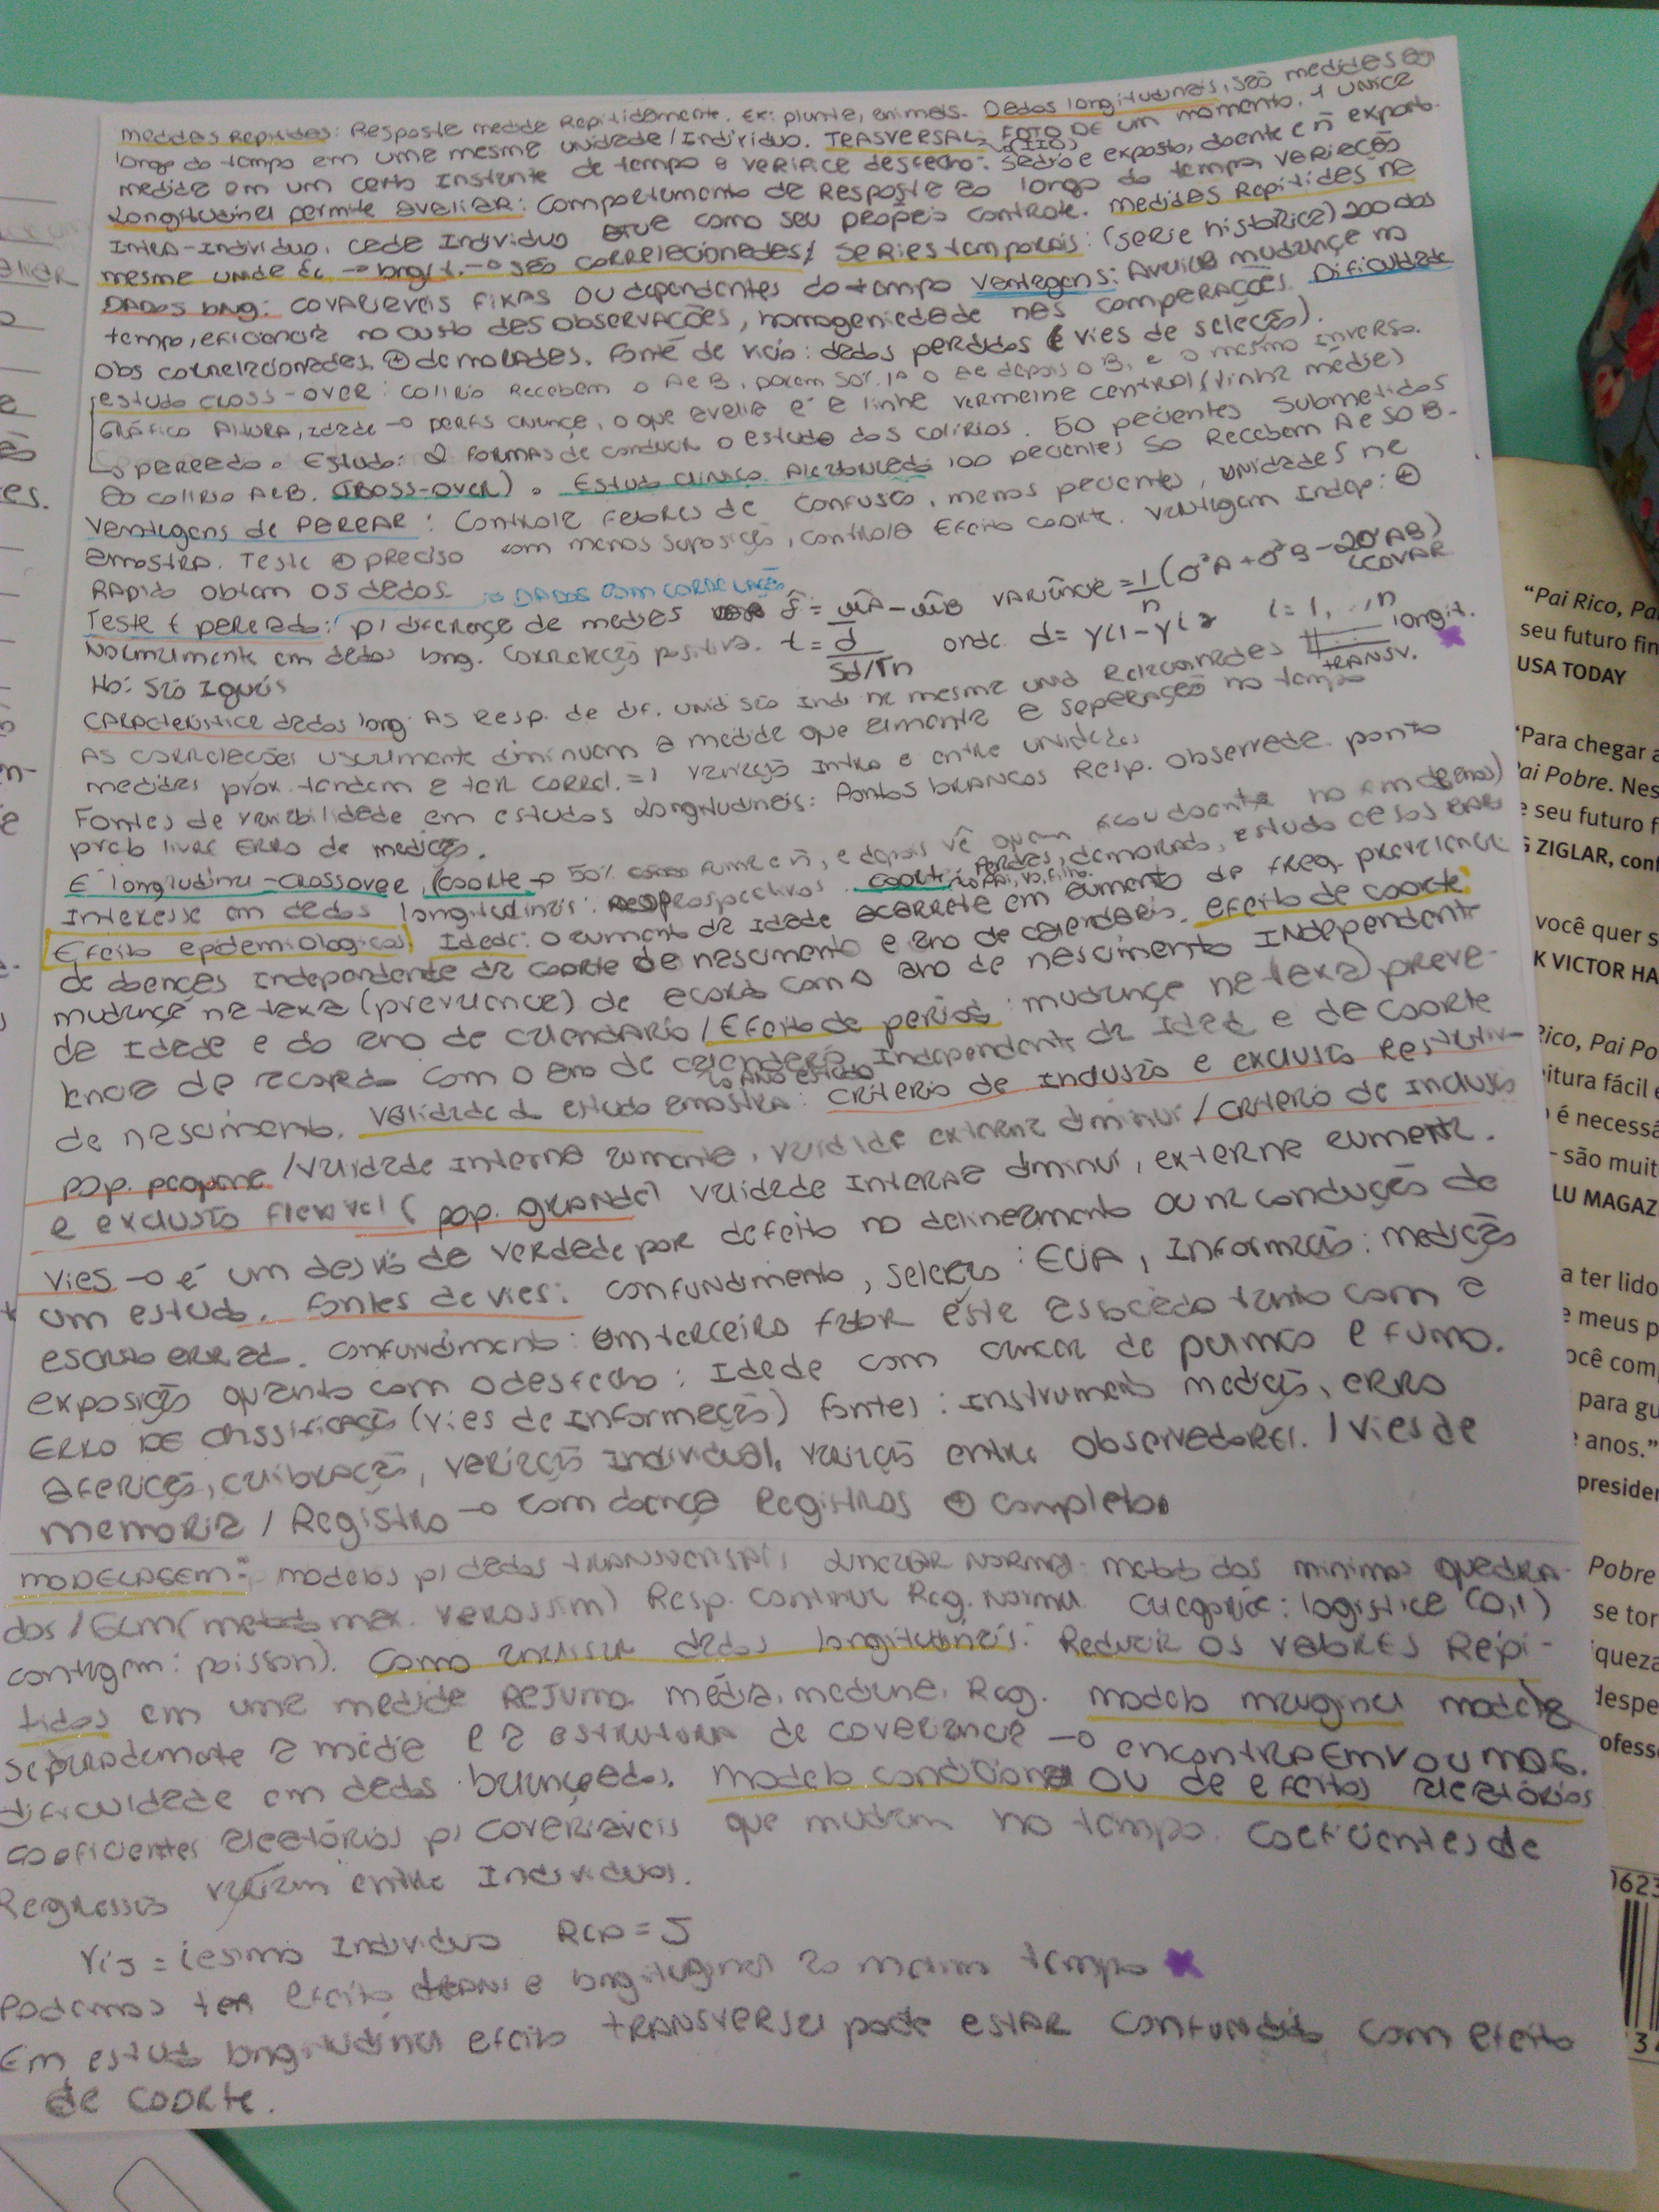 Medidas Repitidas: Resposta medida Repitidamente. Ex: planta, animais. Dados longitudinais, são medidas ao
longo do tempo em uma mesma unidade/Indivíduo. TRASVERSAL: FOTO DE um momento. 1 UNICA
medida em um certo Instante de tempo e VERIFICA desfecho: sadio e exposto, doente e ñ exposto.
Longitudinal permite avaliar: Comportamento da Resposta ao longo do tempo, VARIAÇÃO
INTRA-Indivíduo. Cada Indivíduo atua como seu própRio controle. Medidas Repitidas na
mesma unidade -> longit. -> são CORRelacionadas/ Series temporais: (serie histórica) 200 dos
DADOS long: COVARIAVEIS FIXAS OU dependentes do tempo Vantagens: Avalia mudança no
tempo, eficiencia no custo das OBSERVAÇÕES, homogeniedade nas COMPARAÇÕES. Dificuldade
Obs correlacionadas, + demoradas. Fonte de vicio: dados perdidos (vies de seleção).
estudo CROSS-OVER: Colirio Recebem o A e B, porem 50% 1º o A e depois o B, e o mesmo inverso.
GRÁFICO ALTURA, idade -> criança, o que avalia é a linha vermelha central (linha média)
pareado. Estudo: 2 FORMAS de conduzir o estudo dos colirios. 50 pacientes submetidos
ao colirio A e B. (CROSS-OVER). Estudo clinico Aleatorizado 100 pacientes só Recebem A e só B.
Vantagens de PAREAR: Controla Fatores de confusão, menos pacientes, unidades na
amostra. Teste + preciso com menos suposição, controla Efeito coorte. Vantagem Indep: +
RApido obtem os dados -> DADOS COM CORRELAÇÃO
Teste t pareado: p/ diferença de medias δ̂ = μ̂A - μ̂B VARIÂNCIA = 1/n (σ²A + σ²B - 2σAB) COVAR
Normalmente em dados long. Correlação positiva. t = d̄ / Sd/√n onde d = yi1 - yi2 i = 1, .., n
H0: são Iguais longit. TRANSV.
CARActeristica dados long: As Resp. de dif. unid são ind na mesma unid Relacionadas
As correlações usualmente diminuem a medida que aumenta a separação no tempo
medidas prox. tendem a ter correl. = 1 variação Intra e entre unidades
Fontes de variabilidade em estudos Longitudinais: Pontos brancos Resp. observada ponto
livre ERRO de medição.
É longitudinal - crossover, (coorte -> 50% fuma e ñ, e depois vê quem ficou doente
Interesse em dados longitudinais: prospectivos. coorte: perdas, demorado, estudo casos RARO
Efeito epidemiologicos Idade: o aumento da idade acarreta em aumento da freq. prevalencia
de doenças independente da coorte de nascimento e ano de calendario. efeito de coorte:
mudança na taxa (prevalencia) de acordo com o ano de nascimento Independente
de Idade e do ano de calendário / Efeito de periodo: mudança na taxa) preva-
lencia de acordo com o ano de calendario, Independente da Idade e de coorte
-> ANO ESTUDO
de nascimento. Validade do estudo amostra: criterio de inclusão e exclusão Restritiv-
pop. pequena / Validade interna aumenta, validade externa diminui / criterio de inclusão
e exclusão flexivel (pop. grande) validade INTERNA diminui, externa aumenta.
Vies -> é um desvio da verdade por defeito no delineamento ou na condução de
um estudo. Fontes de vies: confundimento, seleção: ECIA, Informação: medição
escrito errado. Confundimento: um terceiro fator este associado tanto com a
exposição quanto com o desfecho: Idade com cancer de pulmão e fumo.
ERRO DE classificação (vies de Informação) fontes: Instrumento medição, erro
aferição, calibração, variação Individual, variação entre observadores. / Vies de
memoria / Registro -> com doença Registros + completo.
MODELAGEM: modelos p/ dados TRANSVERSAL, LINEAR NORMAL: metodo dos minimos quadra-
dos / GLM (metodo max. verossim) Resp. continua Reg. Normal. Categorica: logistica (0,1)
contagem: poisson). Como analisar dados longitudinais: Reduzir os valores Repi-
tidos em uma medida Resumo. média, mediana, Reg. modelo marginal modela
separadamente a média e a estrutura de covariancia -> encontra EMV ou MQG.
dificuldade em dados balanceados. modelo condicional ou de efeitos aleatórios
coeficientes aleatórios p/ covariáveis que mudam no tempo. Coeficientes de
Regressão variam entre Individuos.
Yij = iesimo Individuo Rep = J
Podemos ter efeito trans e longitudinal ao mesmo tempo
Em estudo longitudinal efeito TRANSVERSAL pode estar confundido com efeito
de coorte.
"Pai Rico, Pa
seu futuro fin
USA TODAY
"Para chegar a
Pai Pobre. Nes
e seu futuro f
G ZIGLAR, conf
você quer s
K VICTOR HA
Rico, Pai Po
itura fácil e
é necessá
são muit
LU MAGAZ
a ter lido
e meus p
ocê com
para gu
anos."
presiden
Pobre
se tor
iqueza
despe
ofess